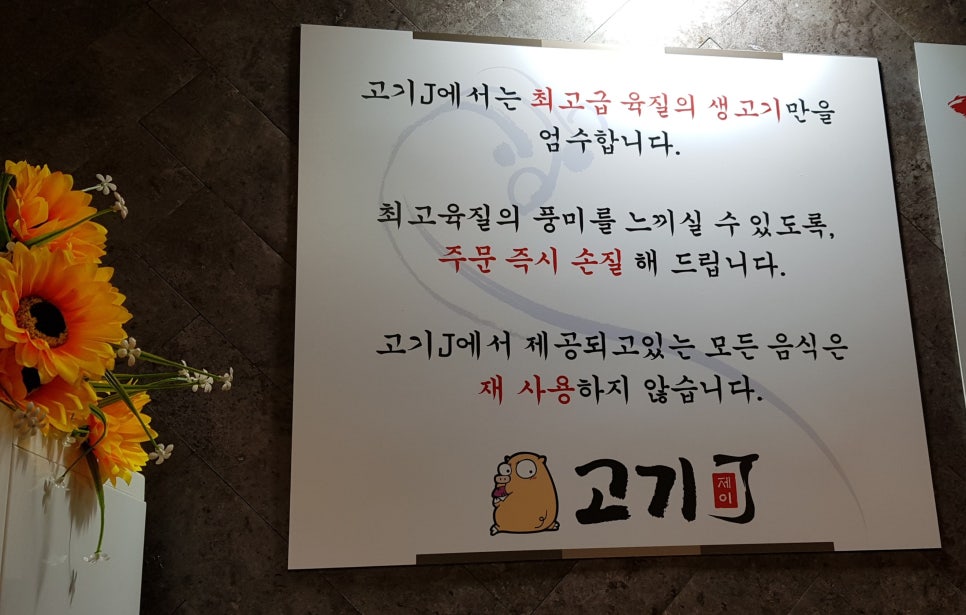 고기J에서는 최고급 육질의 생고기만을
엄수합니다.
최고육질의 풍미를 느끼실 수 있도록,
주문 즉시 손질 해 드립니다.
고기J에서 제공되고있는 모든 음식은
재 사용하지 않습니다.
고기J
제이